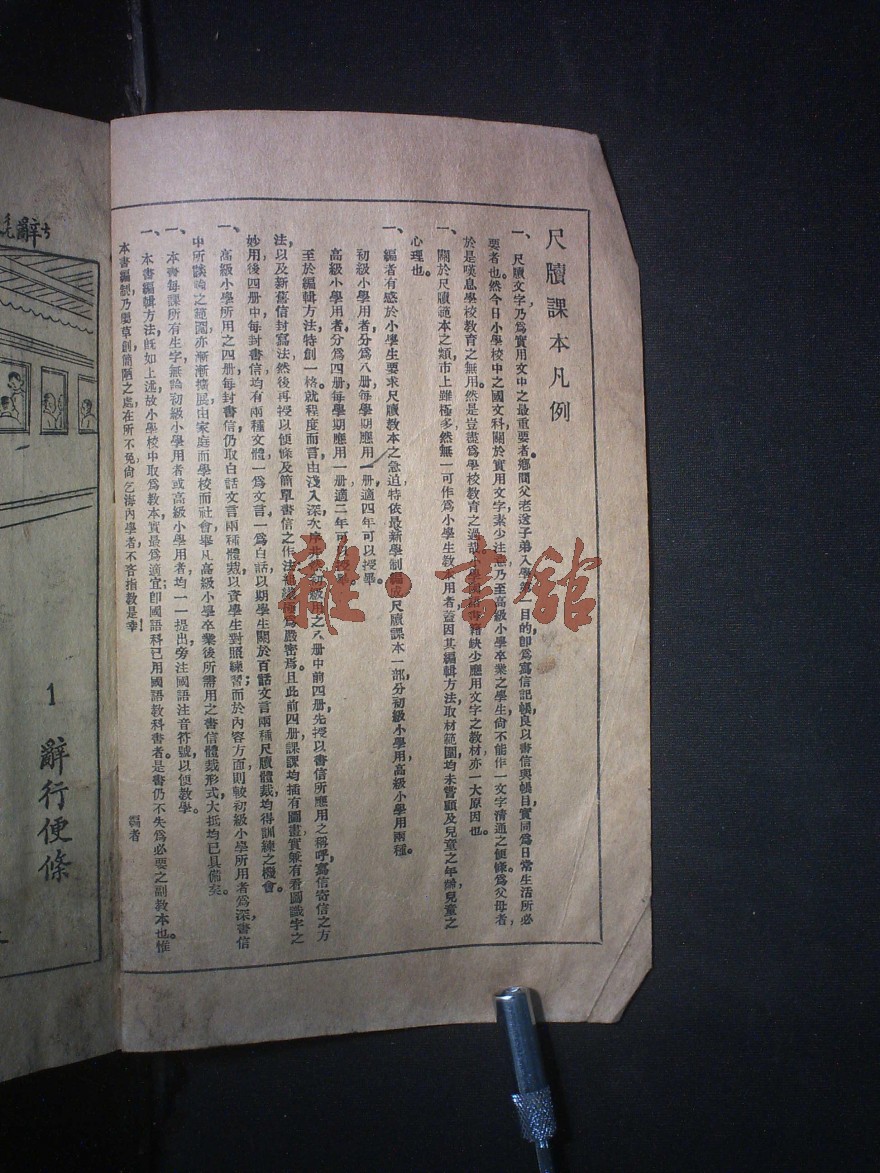 尺牘課本凡例
一、尺牘文字乃爲實用文中之最重要者。鄉間父老送子弟入學第一目的卽爲寫信記帳良以書信與帳目實同爲日常生活所必
要者也。然今日小學校中之國文科關於實用文字素少注意乃至高級小學卒業之學生尙不能作一文字清通之便條爲父母者，
於是嘆息學校敎育之無用。然是豈盡爲學校敎育之過哉。小學國語書籍缺少應用文字之敎材亦一大原因也。
一、關於尺牘範本之類市上雖極多然無一可作爲小學生敎本用者蓋因其編輯方法取材範圍均未嘗顧及兒童之年齡兒童之
心理也。
一、編者有感於小學生要求尺牘敎本之急迫特依最新學制編成尺牘課本一部，分初級小學用，高級小學用兩種。
初級小學用者，分爲八册每學期應用一册適四年可以授畢。
高級小學用者，分爲四册，每學期應用一册，適二年可以授畢。
至於編輯方法，特創一格。就程度而言，由淺入深次序井然初級用之八册中前四册，先授以書信所應用之稱呼，寫信寄信之方
法，以及新舊信封寫法然後再授以便條及簡單書信之作法組織極爲嚴密焉。且此前四册課課均插有圖畫實兼有看圖識字之
妙用，後四册中每封書信均有兩種文體一爲文言一爲白話以期學生關於百話文言兩種尺牘體裁均得訓練之機會。
一、高級小學所用之四册，每封書信仍取白話文言兩種體裁以資學生對照練習；而於內容方面，則較初級小學所用者爲深書信
中所談論之範圍亦漸漸擴展由家庭而學校而社會畢凡高級小學卒業後所需用之書信體裁形式大抵均已具備矣。
一、本書每課所有生字，無論初級小學用者或高級小學用者，均一一提出旁注國語注音符號以便敎學。
一、本書編輯方法，旣如上述，故小學校中取爲敎本，實最爲適宜；卽國語科已用國語敎科書者，是書仍不失爲必要之副敎本也。惟
本書編製乃屬草創，簡陋之處在所不免尙乞海內學者不吝指敎是幸！
編者
雜·書舘
辭
1 辭行便條